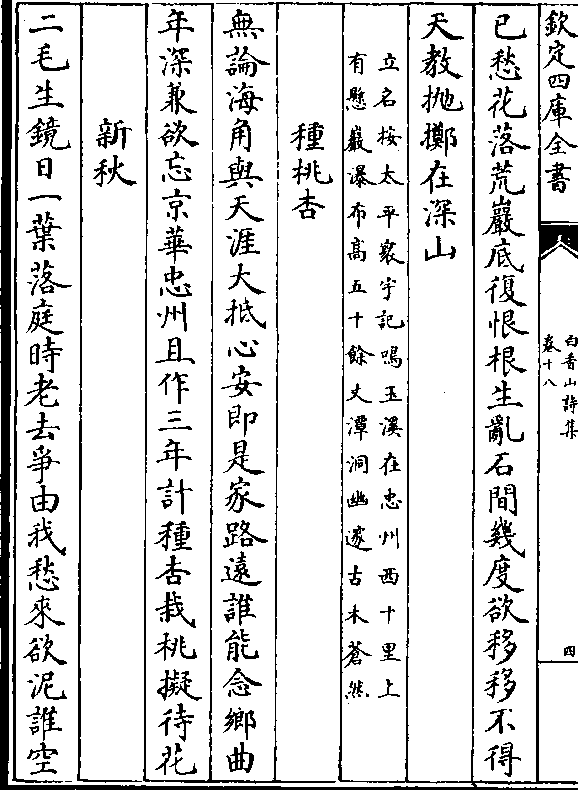 欽定四庫全書
白香山詩集
卷十八
四
已愁花落荒巖底復恨根生亂石間幾度欲移移不得
天教抛擲在深山
立名按太平寰宇記鳴玉溪在忠州西十里上
有懸巖瀑布高五十餘丈潭洞幽邃古木蒼然
種桃杏
無論海角與天涯大抵心安即是家路遠誰能念鄉曲
年深兼欲忘京華忠州且作三年計種杏栽桃擬待花
新秋
二毛生鏡日一葉落庭時老去爭由我愁來欲泥誰空